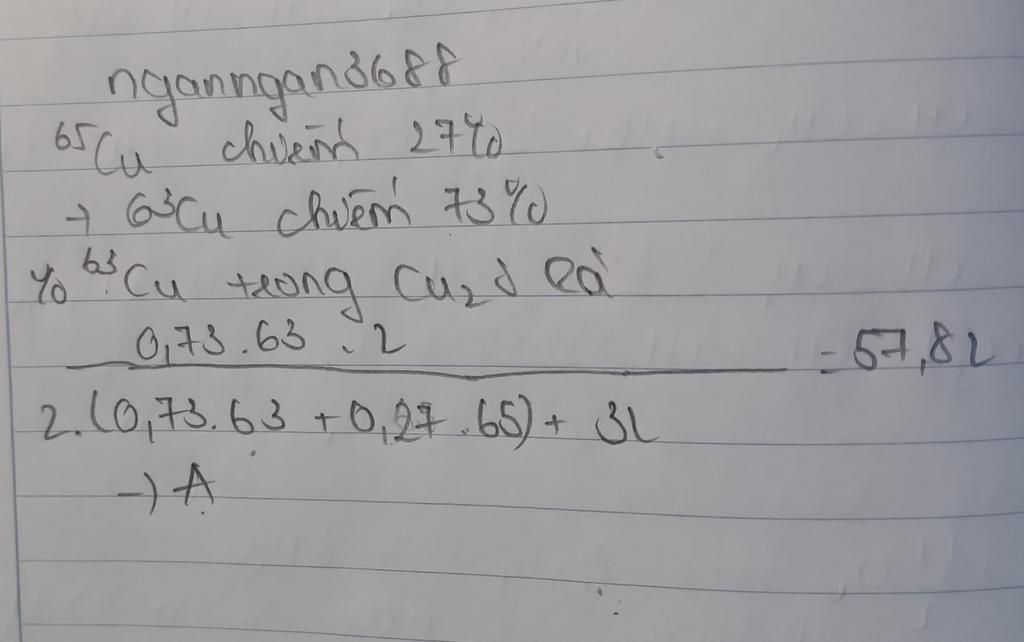 nganngan3688
⁶⁵Cu chiếm 27%
→ ⁶³Cu chiếm 73%
% ⁶³Cu trong Cu₂S là
0,73.63.2
= 57,82
2.(0,73.63 + 0,27.65) + 32
→ A